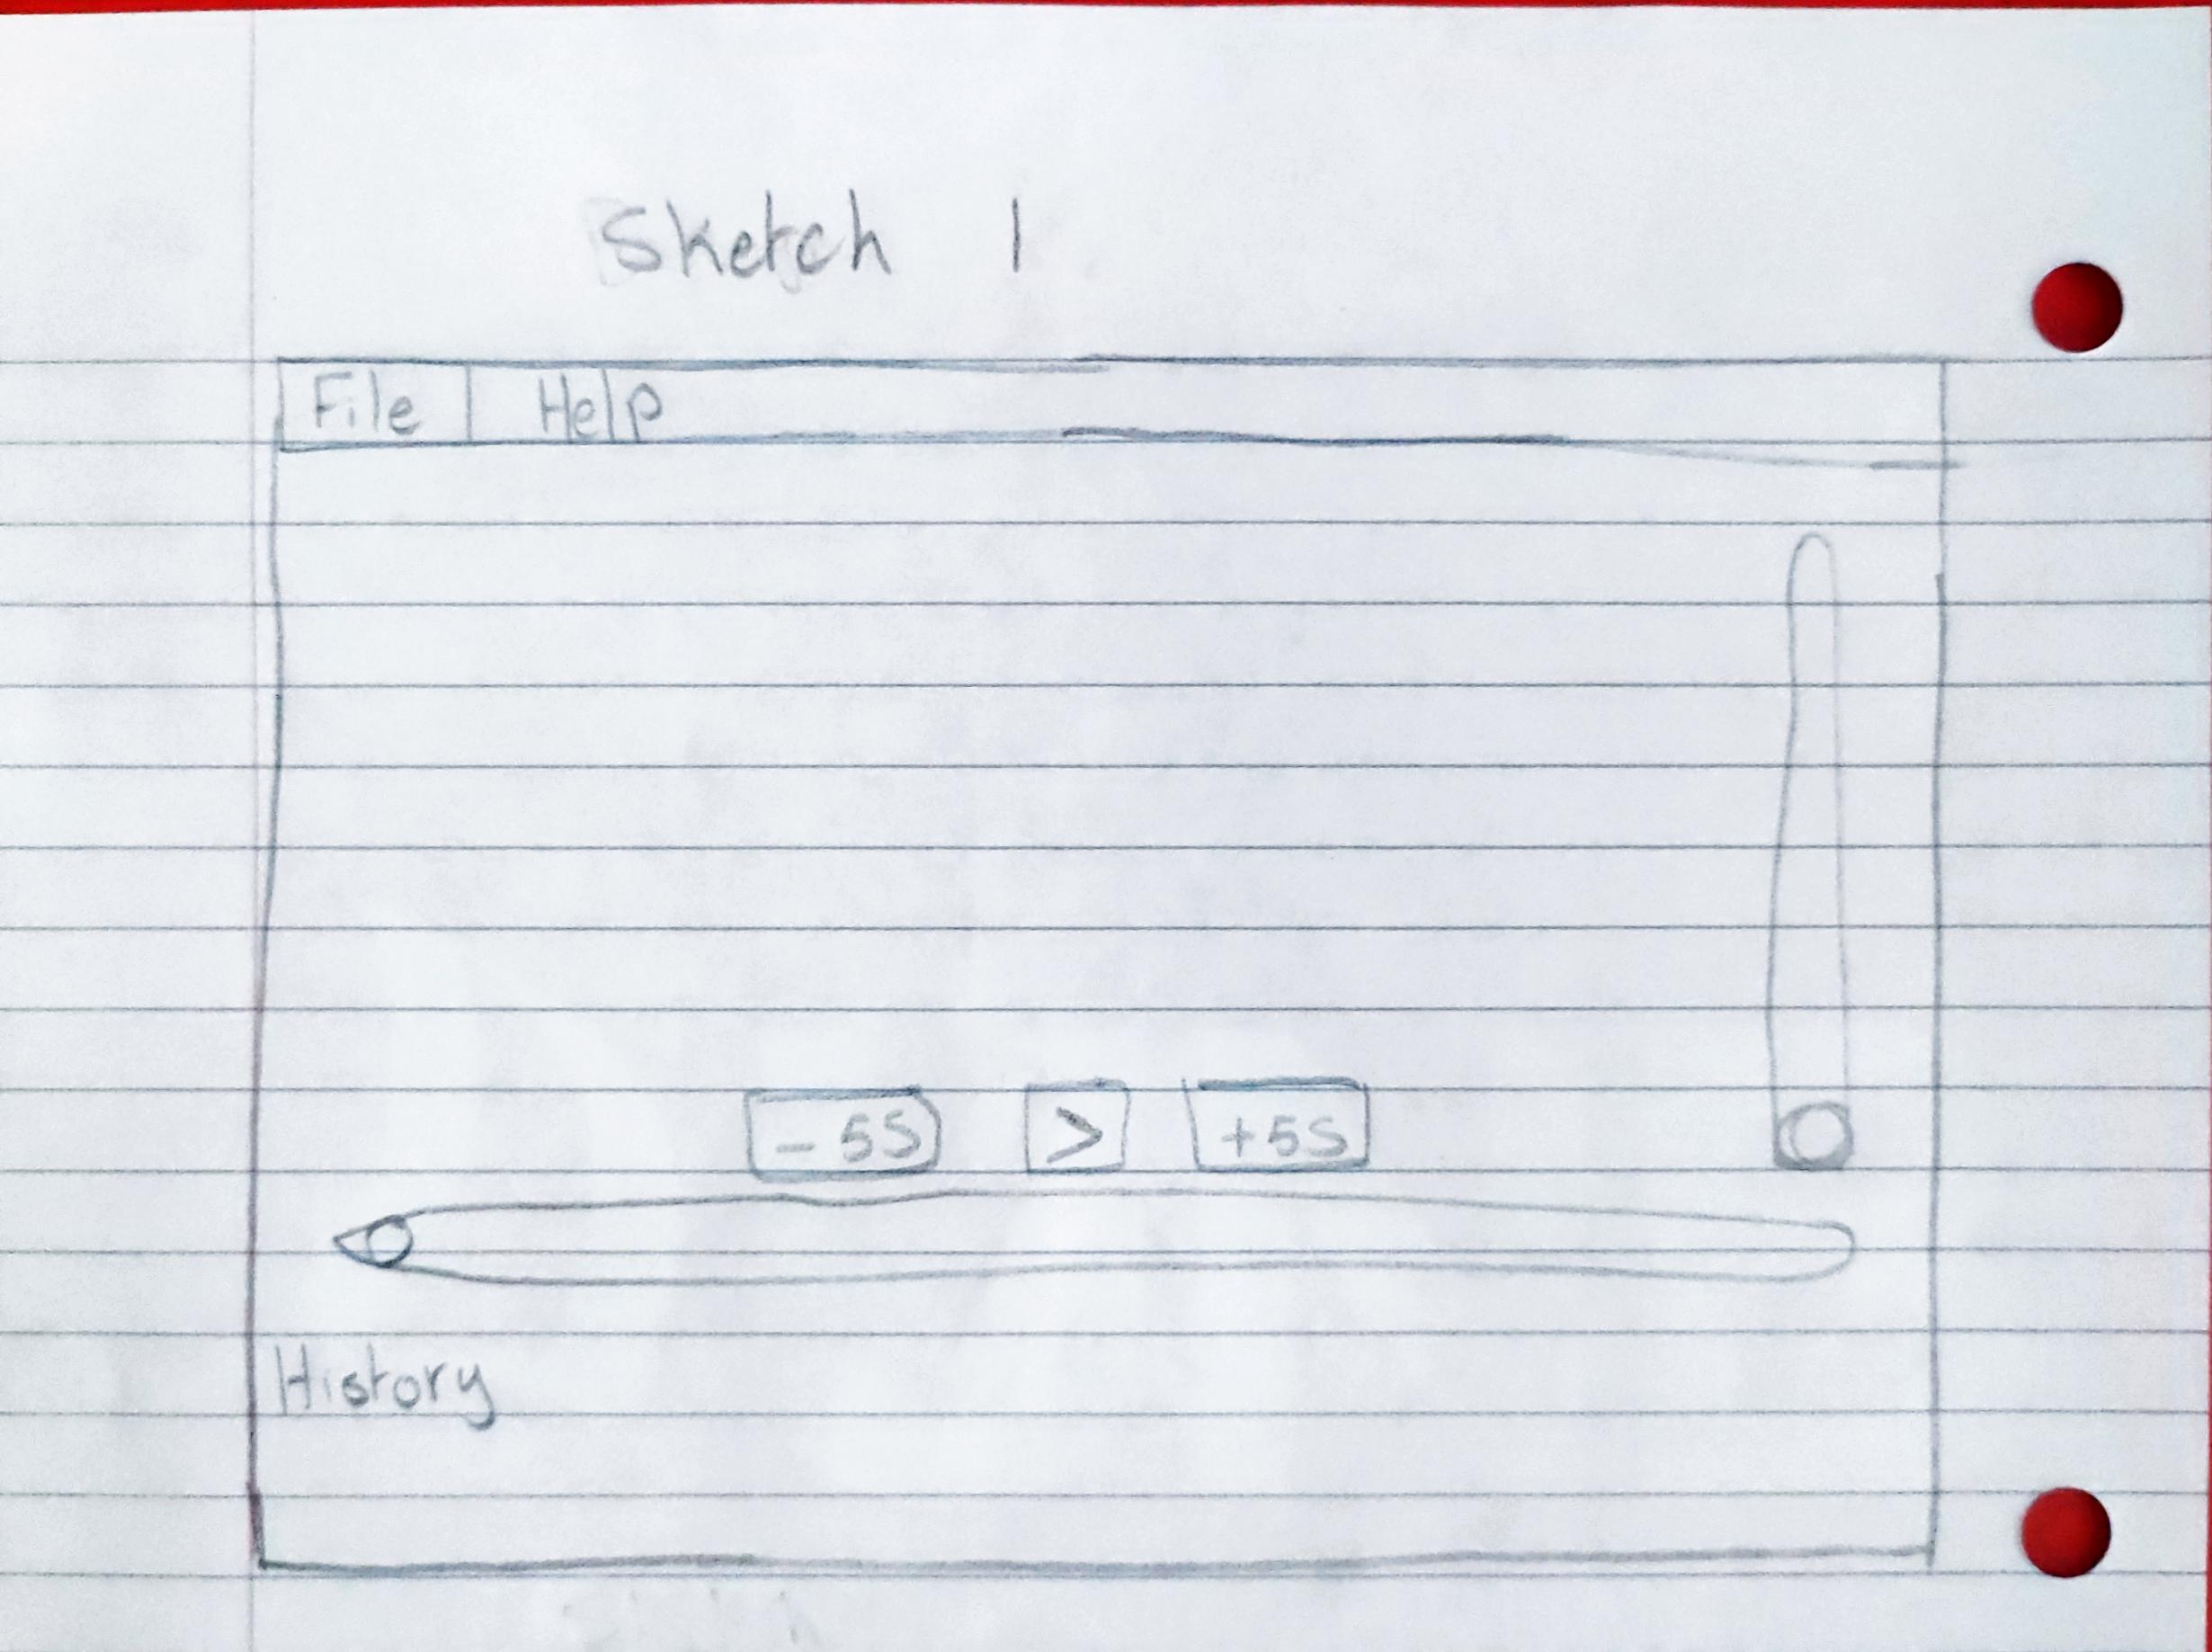 Sketch 1
File Help
- 5S > +5S
History